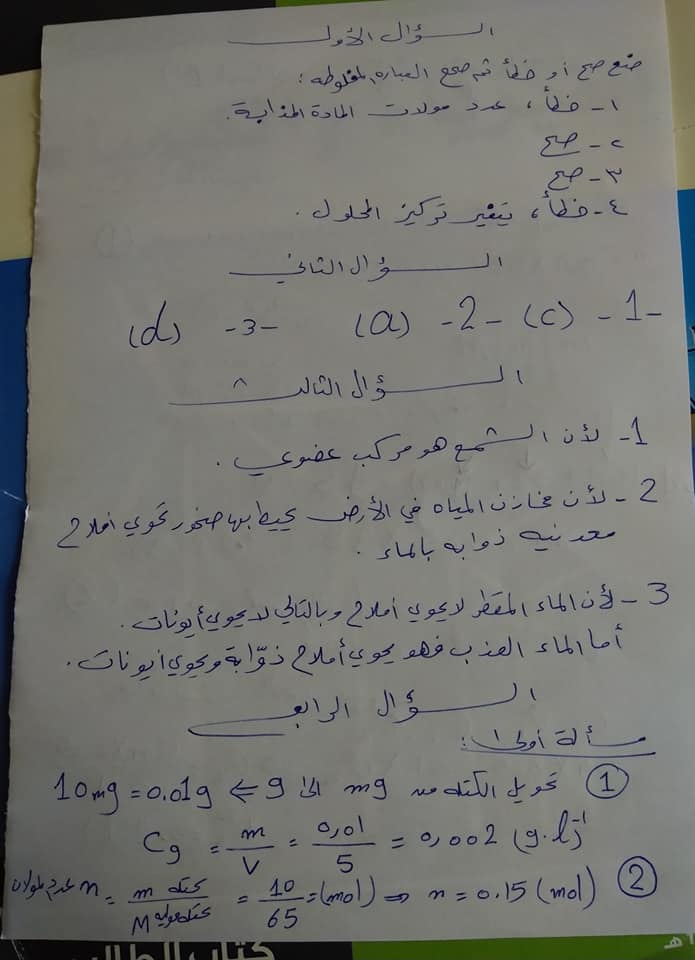 السؤال الأول
ضع صح أو خطأ ثم صحح العبارة المغلوطة:
١- خطأ، عدد مولات المادة المذابة.
٢- صح
٣- صح
٤- خطأ، يتغير تركيز المحلول.
السؤال الثاني
1- (c) 2- (a) 3- (d)
السؤال الثالث
1- لأن الشمع هو مركب عضوي.
2- لأن مخازن المياه في الأرض يحيط بها صخور تحوي أملاح
معدنيه ذوابه بالماء.
3- لأن الماء المقطر لا يحوي أملاح وبالتالي لا يحوي أيونات.
أما الماء العذب فهو يحوي أملاح ذوّابة ويحوي أيونات.
السؤال الرابع
مسألة أولى:
① تحويل الكتله من mg الى g ⇐ 10mg = 0.01g
Cg = m/V = 0,01/5 = 0,002 (g.l⁻¹)
② عدد المولات n = m كتله / M كتله موليه = 10/65 = (mol) ⇒ n = 0.15 (mol)
كتاب الطالب